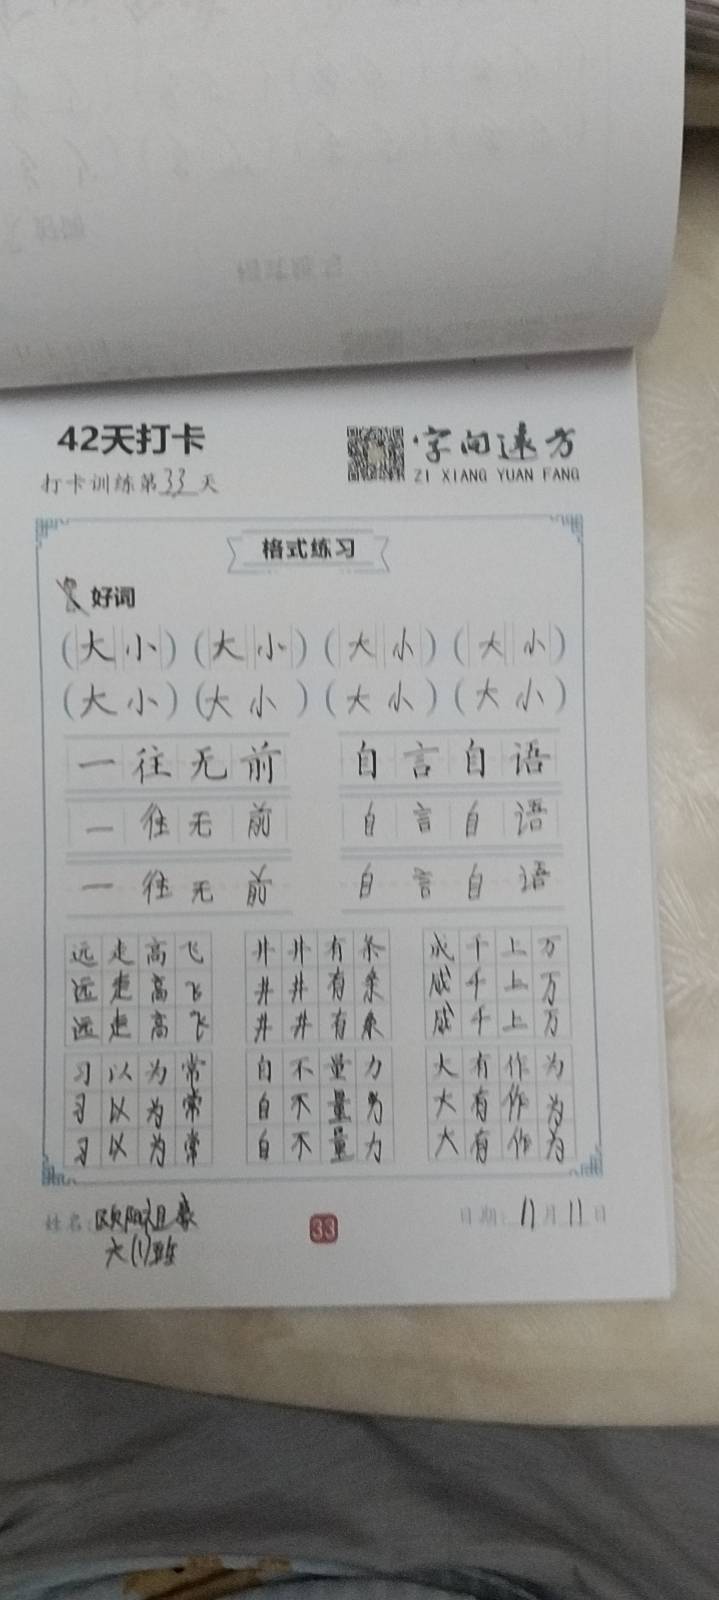 42天打卡
字向远方
打卡训练第33天
ZI XIANG YUAN FANG
格式练习
好词
(大小)(大小)(大小)(大小)
(大小)(大小)(大小)(大小)
一往无前 自言自语
一往无前 自言自语
一往无前 自言自语
远走高飞 井井有条 成千上万
远走高飞 井井有条 成千上万
远走高飞 井井有条 成千上万
习以为常 自不量力 大有作为
习以为常 自不量力 大有作为
习以为常 自不量力 大有作为
姓名:欧阳祖豪 33 日期:11月11日
六(1)班